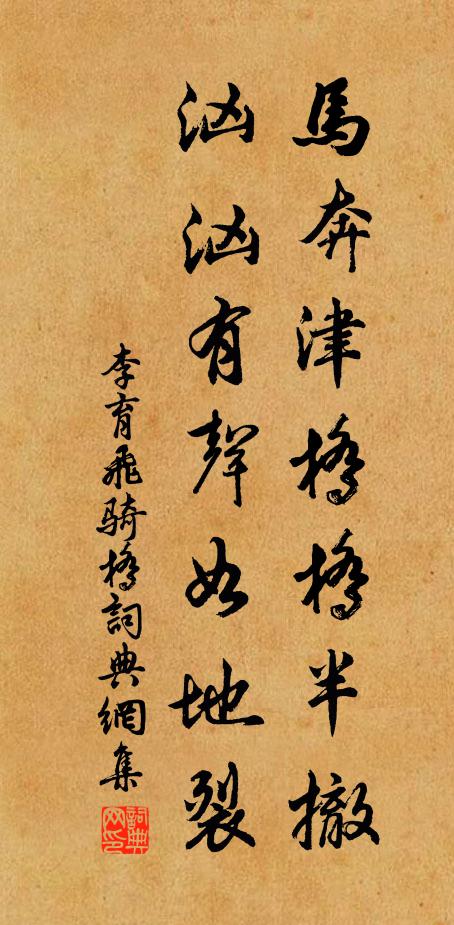 馬奔津橋橋半撤
汹汹有聲如地裂
李育飛騎橋詞典網集
詞典网印